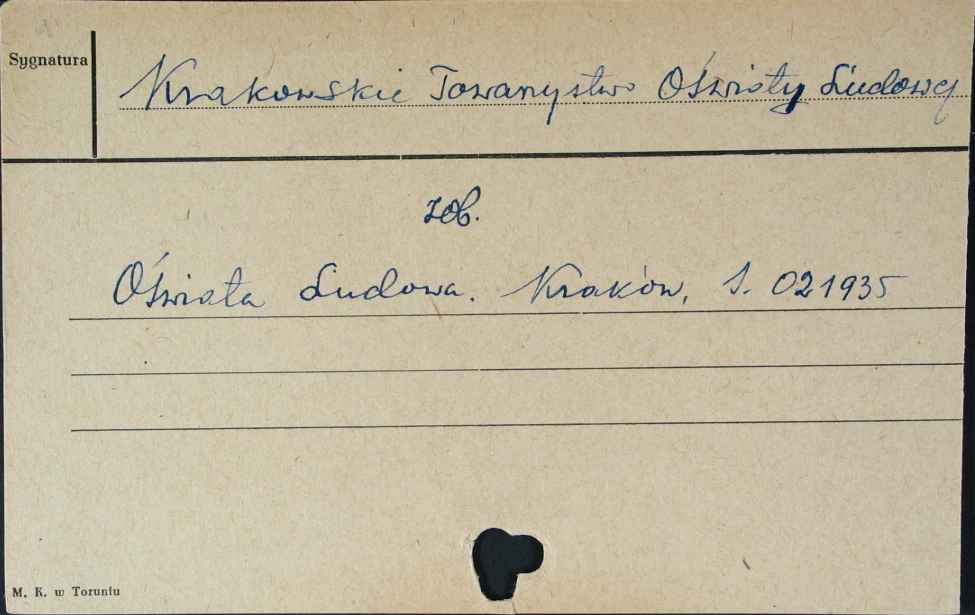 Sygnatura
Krakowskie Towarzystwo Oświaty Ludowej
zob.
Oświata Ludowa. Kraków, S. 021935
M. K. w Toruniu